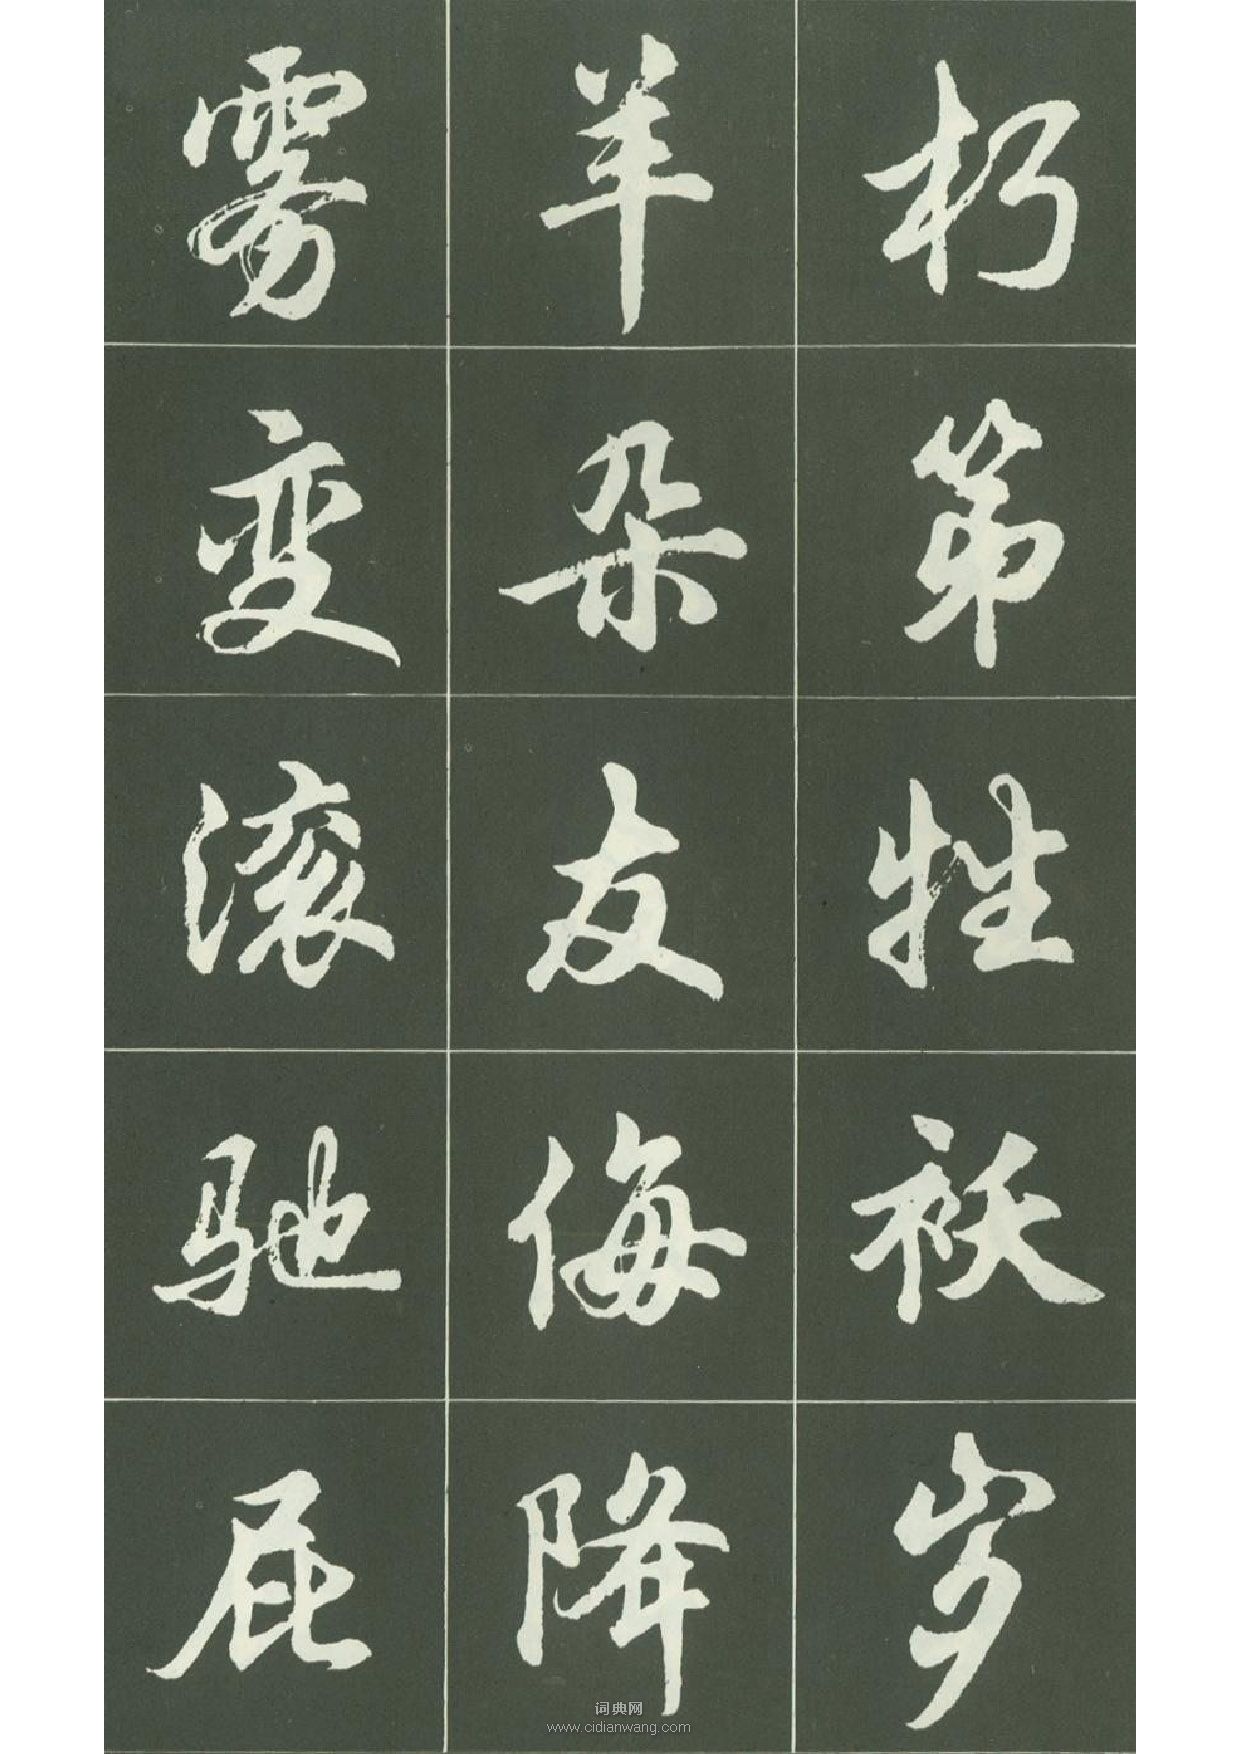 朽第牲袄岁
羊朵友侮降
雾变滚驰屁
词典网
www.cidianwang.com